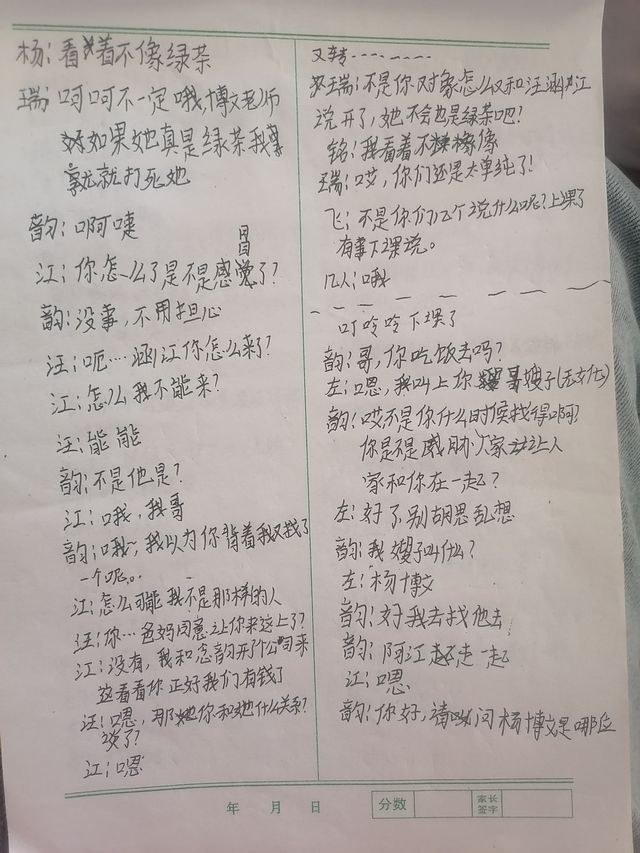 杨：看着不像绿茶
瑞：呵呵不一定哦，博文老师
如果她真是绿茶我
就打死她
韵：啊嚏
江：你怎么了是不是感冒了？
韵：没事，不用担心
汪：呃…涵江你怎么来了？
江：怎么我不能来？
汪：能能
韵：不是他是？
江：哦，我哥
韵：哦~，我以为你背着我又找了
一个呢。
江：怎么可能我不是那样的人
汪：你…爸妈同意让你来这上了？
江：没有，我和念韵开了个公司来
这看看你正好我们有钱了
汪：嗯，那你和她什么关系？
谈了？
江：嗯
又转--------
瑞：不是你对象怎么又和汪涵江
说开了，她不会也是绿茶吧？
铭：我看着不像
瑞：哎，你们还是太单纯了！
飞：不是你们几个说什么呢？上课了
有事下课说。
几人：哦
叮呤呤下课了
韵：哥，你吃饭去吗？
左：嗯，我叫上你嫂子(无奈)
韵：哎不是你什么时候找得啊？
你是不是威胁人家让人
家和你在一起？
左：好了，别胡思乱想
韵：我嫂子叫什么？
左：杨博文
韵：好我去找他去
韵：阿江走一起
江：嗯
韵：你好，请问杨博文是哪位
年 月 日
分数
家长
签字